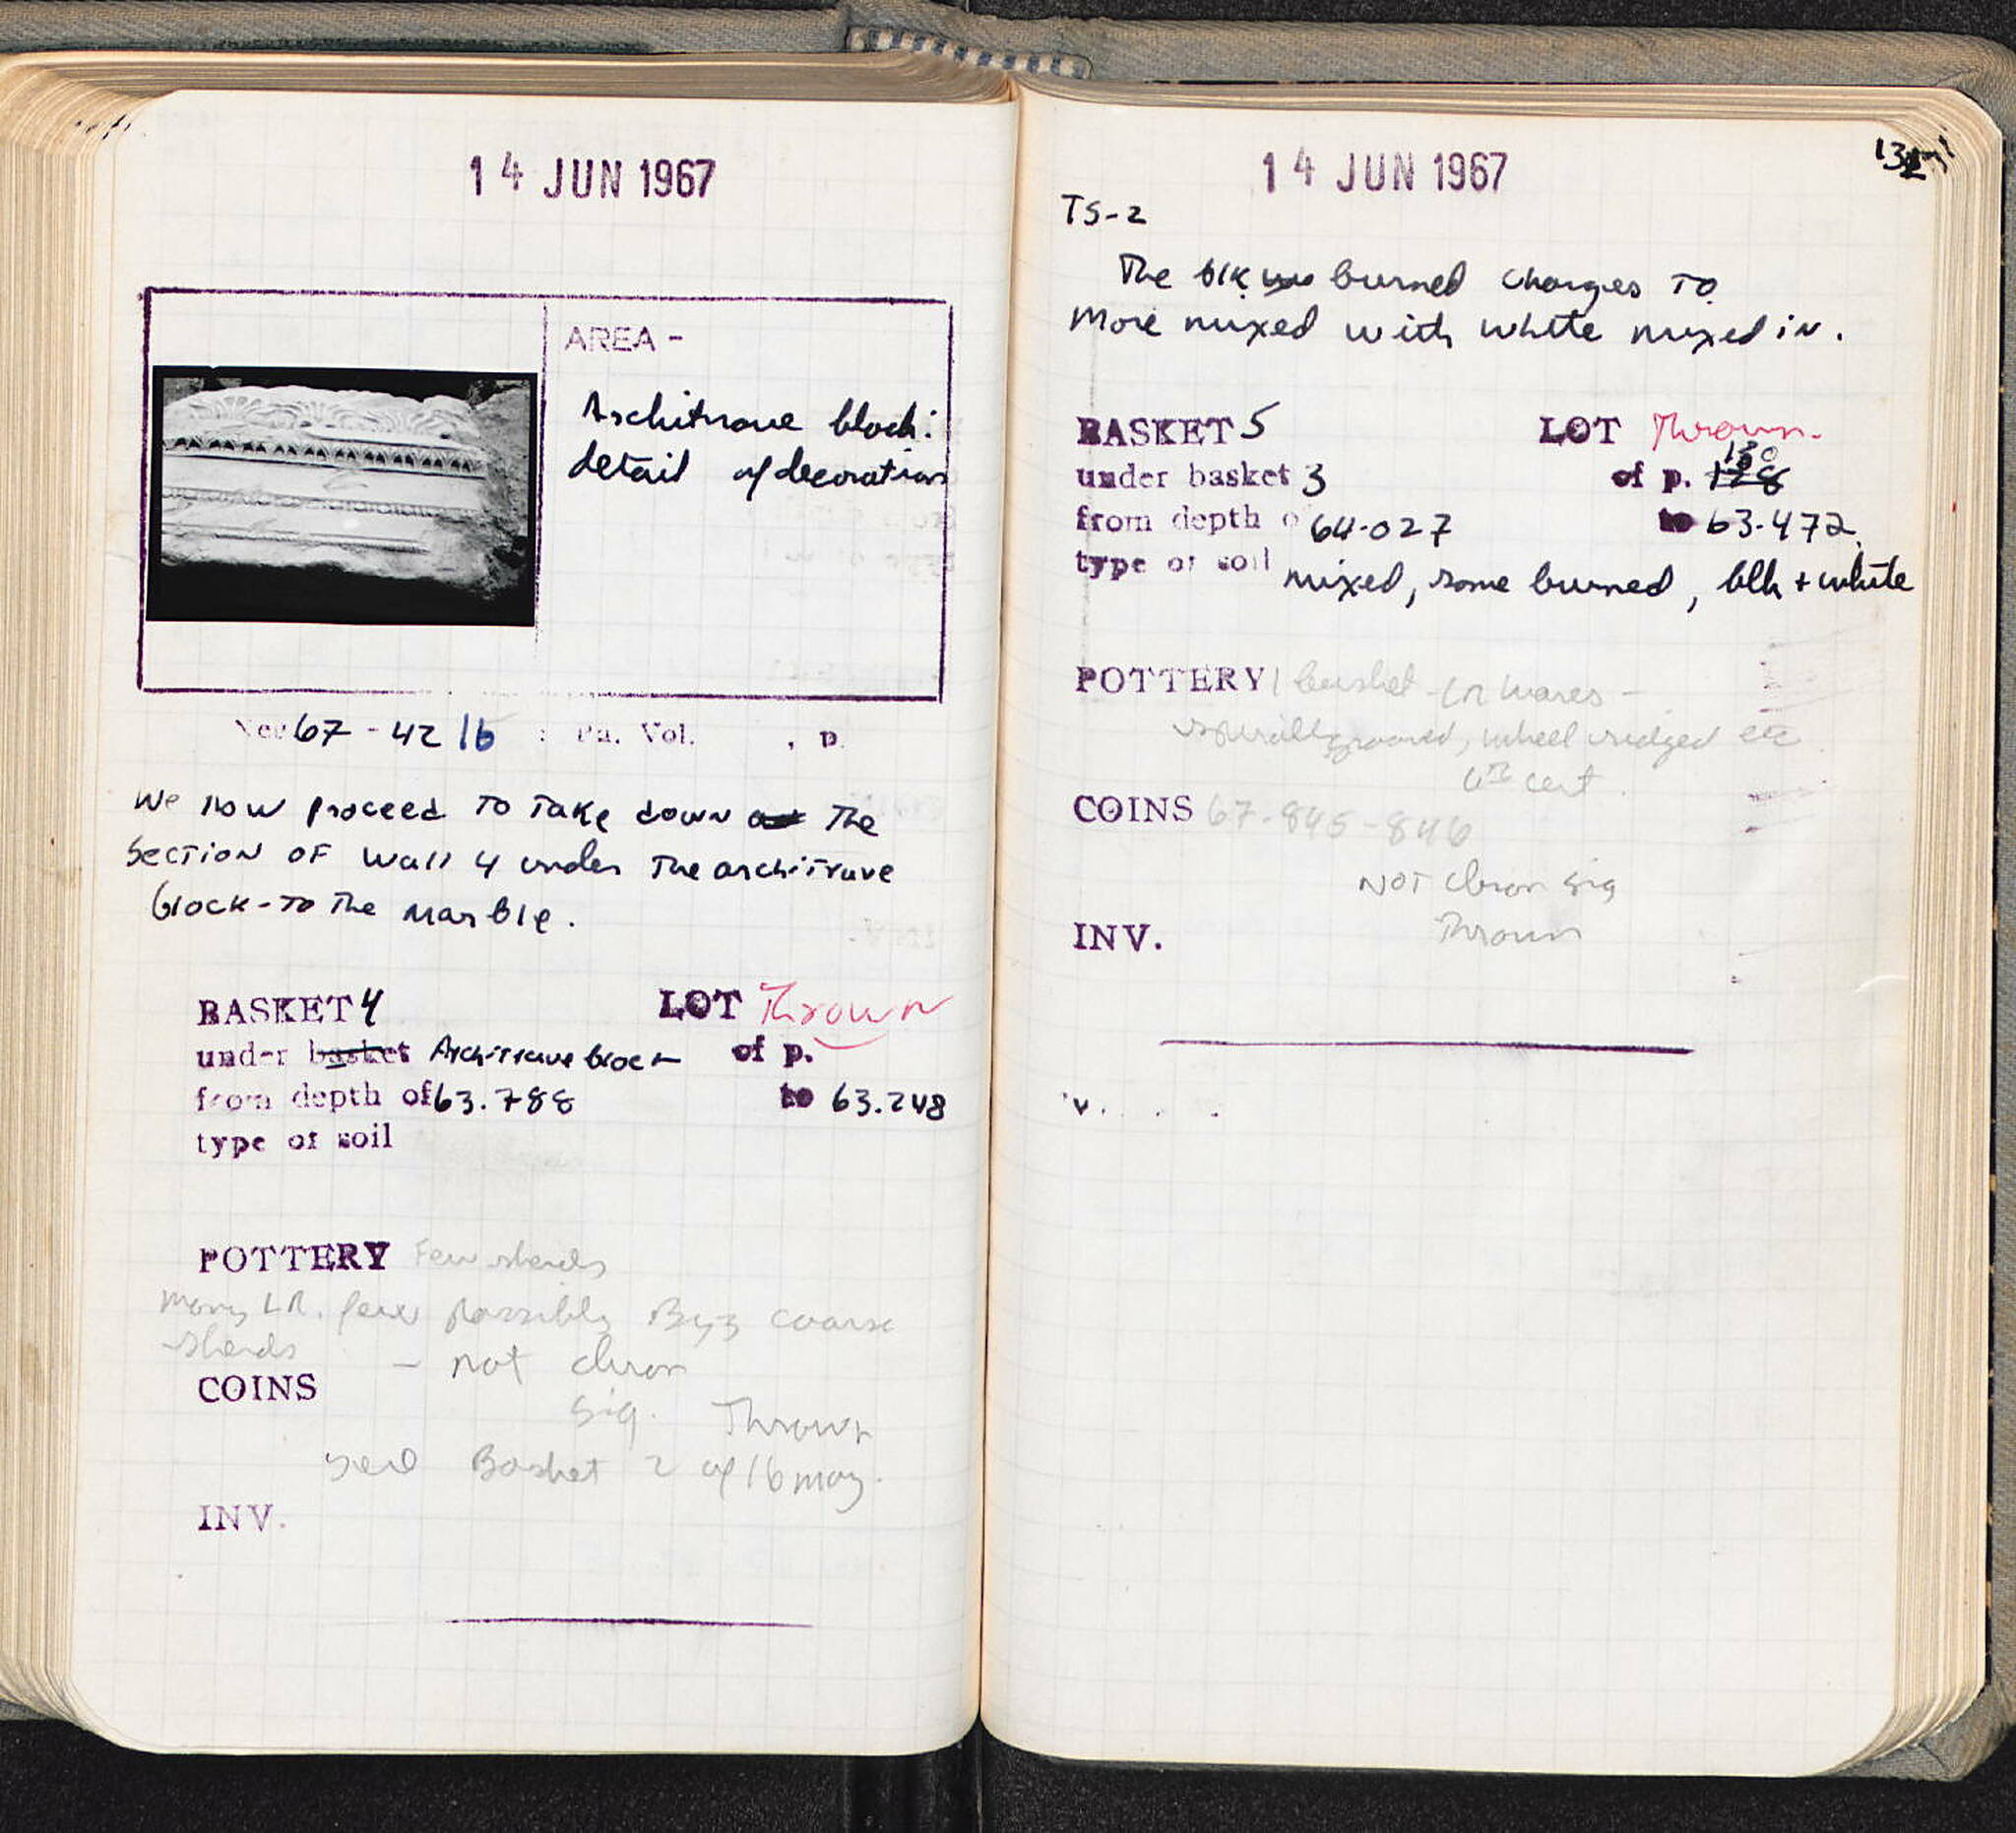 14 JUN 1967
AREA -
Architrave block:
detail of decoration
Neg 67 - 42 16 : Pa. Vol. , p.
We now proceed to take down the
section of wall 4 under the architrave
block - to the marble.
BASKET 4 LOT Thrown
under basket Architrave block of p.
from depth of 63.788 to 63.248
type of soil
POTTERY Few sherds
Many LR. few possibly Byz coarse
sherds - not chron
COINS
sig. Thrown
Basket 2 of 16 may.
INV.
14 JUN 1967
TS-2
The blk burned changes to
more mixed with white mixed in.
BASKET 5 LOT Thrown.
under basket 3 of p. 128 130
from depth o 64.027 to 63.472
type of soil mixed, some burned, blk + white
POTTERY 1 basket - LR wares -
spirally grooved, wheel ridged etc
6th cent.
COINS 67-845-846
NOT chron sig
Thrown
INV.